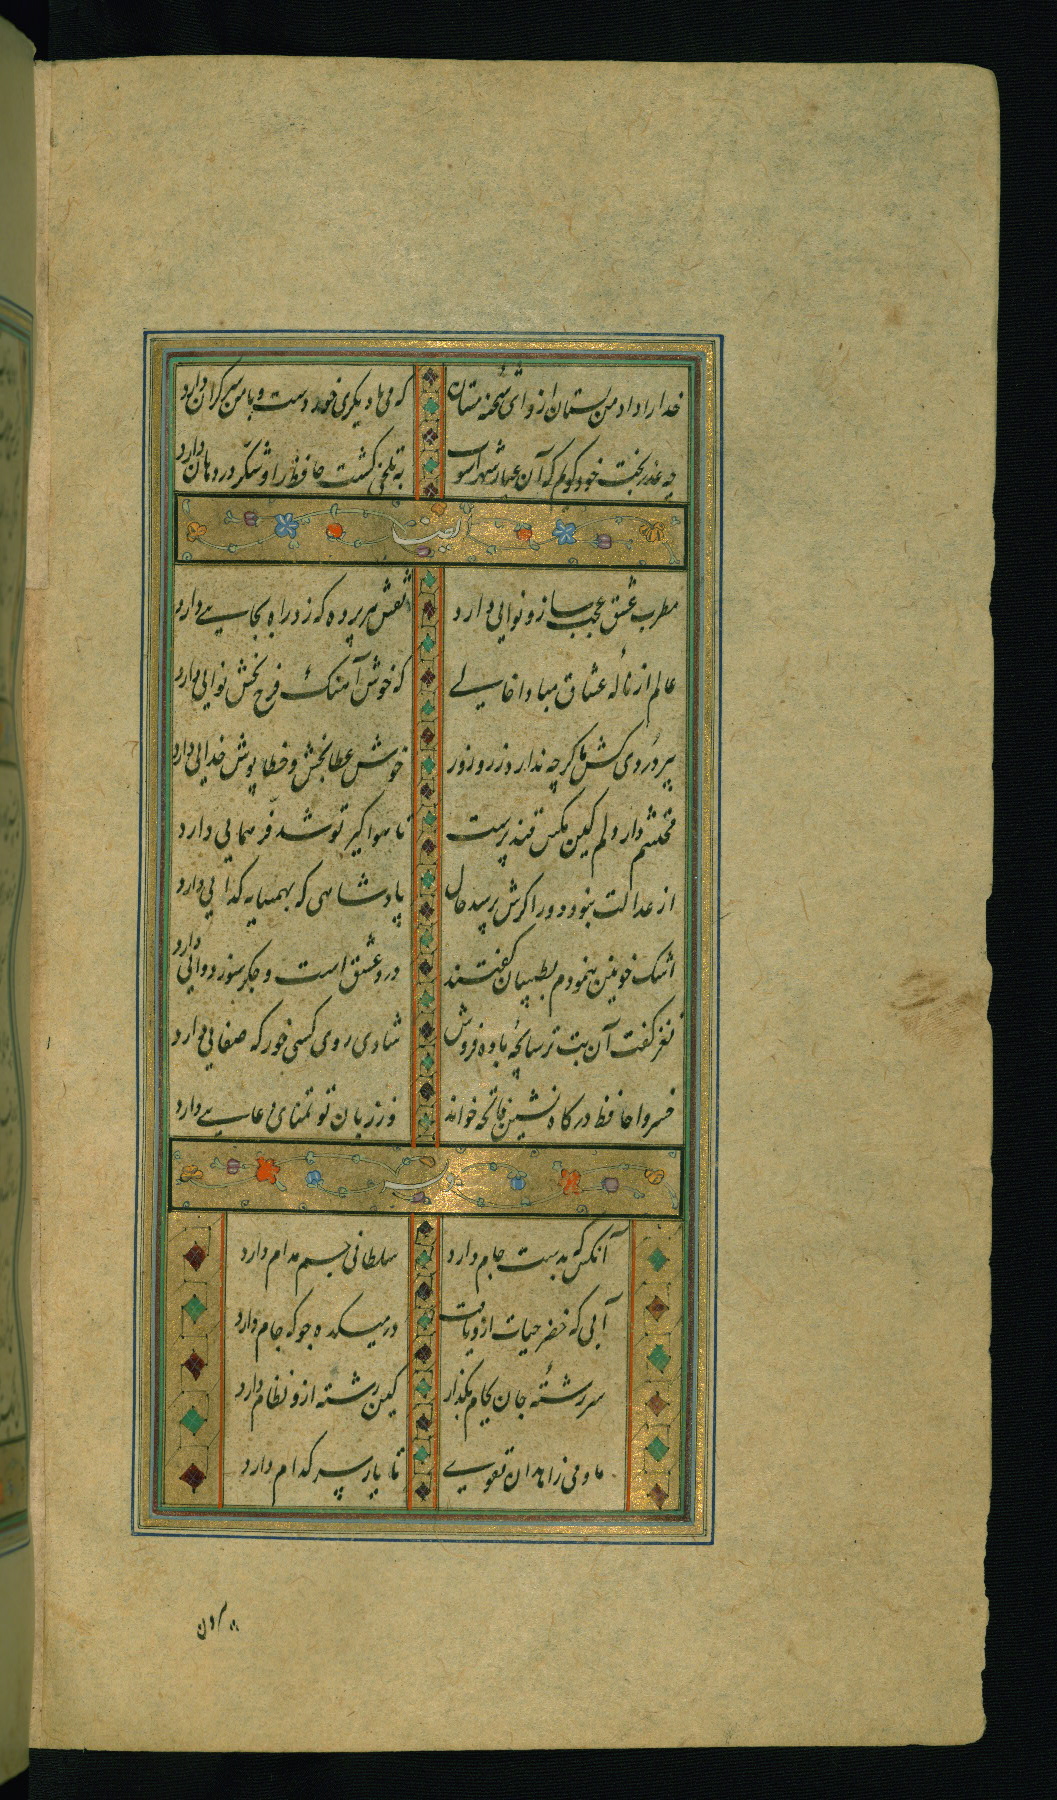 خدا را داد من بستان ازو ای شحنه مستان که می با دیگری خورد دست و با من سر گران دارد
چه عذر بخت خود گویم که آن عیار شهراشوب به تلخی کشت حافظ را و شکر در دهان دارد
ایضا
مطرب عشق عجب ساز و نوایی دارد نقش هر پرده که زد راه بجایی دارد
عالم از نالهٔ عشاق مبادا خالی که خوش آهنگ فرح بخش نوایی دارد
پیر دردی کش ما گرچه ندارد زر و زور خوش عطابخش و خطاپوش خدایی دارد
محتشم دار دلم کین مگس قندپرست تا هواگیر تو شد فر همایی دارد
از عدالت نبود دور اگرش پرسد حال پادشاهی که بهمسایه گدایی دارد
اشک خونین بنمودم بطبیبان گفتند درد عشق است و جگرسوز دوائی دارد
نغز گفت آن بت ترسابچهٔ باده فروش شادی روی کسی خور که صفایی دارد
خسروا حافظ درگاه نشین فاتحه خواند وز زبان تو تمنای دعایی دارد
آنکس که بدست جام دارد سلطانی جم مدام دارد
آبی که خضر حیات ازو یافت در میکده جو که جام دارد
سررشتهٔ جان بجام بگذار کین رشته ازو نظام دارد
ما و می زاهدان تقوی تا یار سر کدام دارد